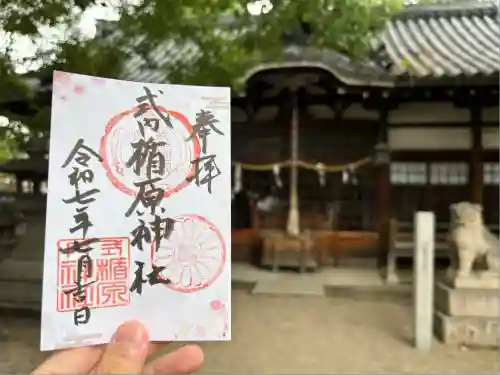 奉拝
式内楯原神社
令和七年七月吉日
式内
楯原
神社